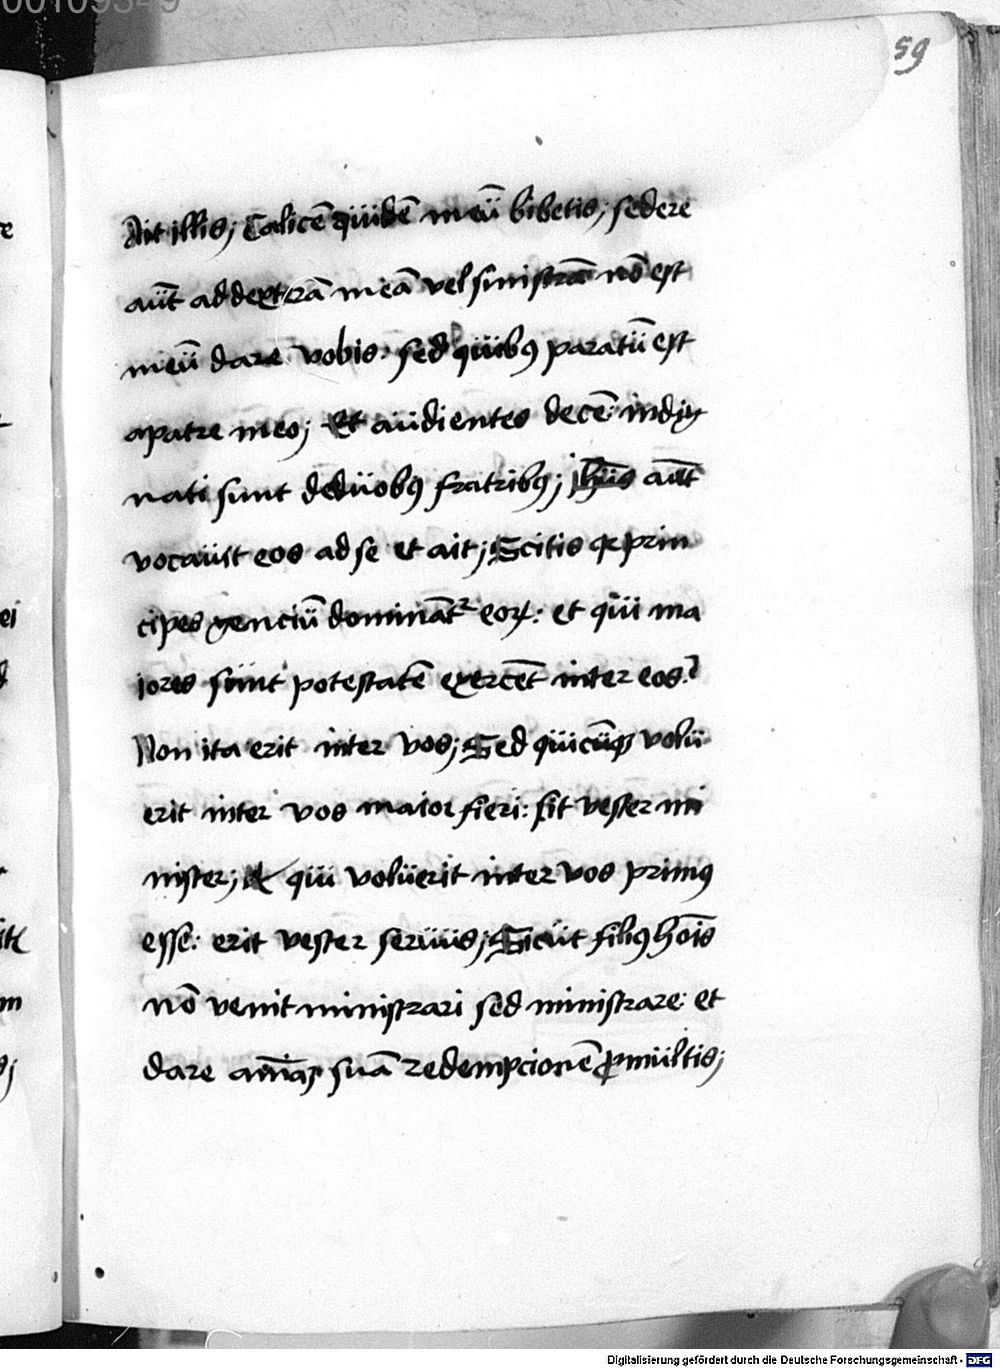 59
Ait illis; Calicē quidē meū bibetis; sedere
aūt ad dextrā meā vel sinistrā nō est
meū dare vobis: sed quibꝰ paratū est
a patre meo; Et audientes decē: indig
nati sunt de duobꝰ fratribꝰ; ihūs autē
vocauit eos ad se et ait; Scitis qꝛ prin
cipes genciū dominātᷣ eoꝝ: et qui ma
iores sunt potestatē exercēt inter eos?
Non ita erit inter vos; Sed quicūqꝫ volu
erit inter vos maior fieri: sit vester mi
nister; Et qui voluerit inter vos primꝰ
esse: erit vester seruus; Sicut filiꝰ hōis
nō venit ministrari sed ministrare: et
dare suā redempcionē ꝓ multis;
Digitalisierung gefördert durch die Deutsche Forschungsgemeinschaft - DFG